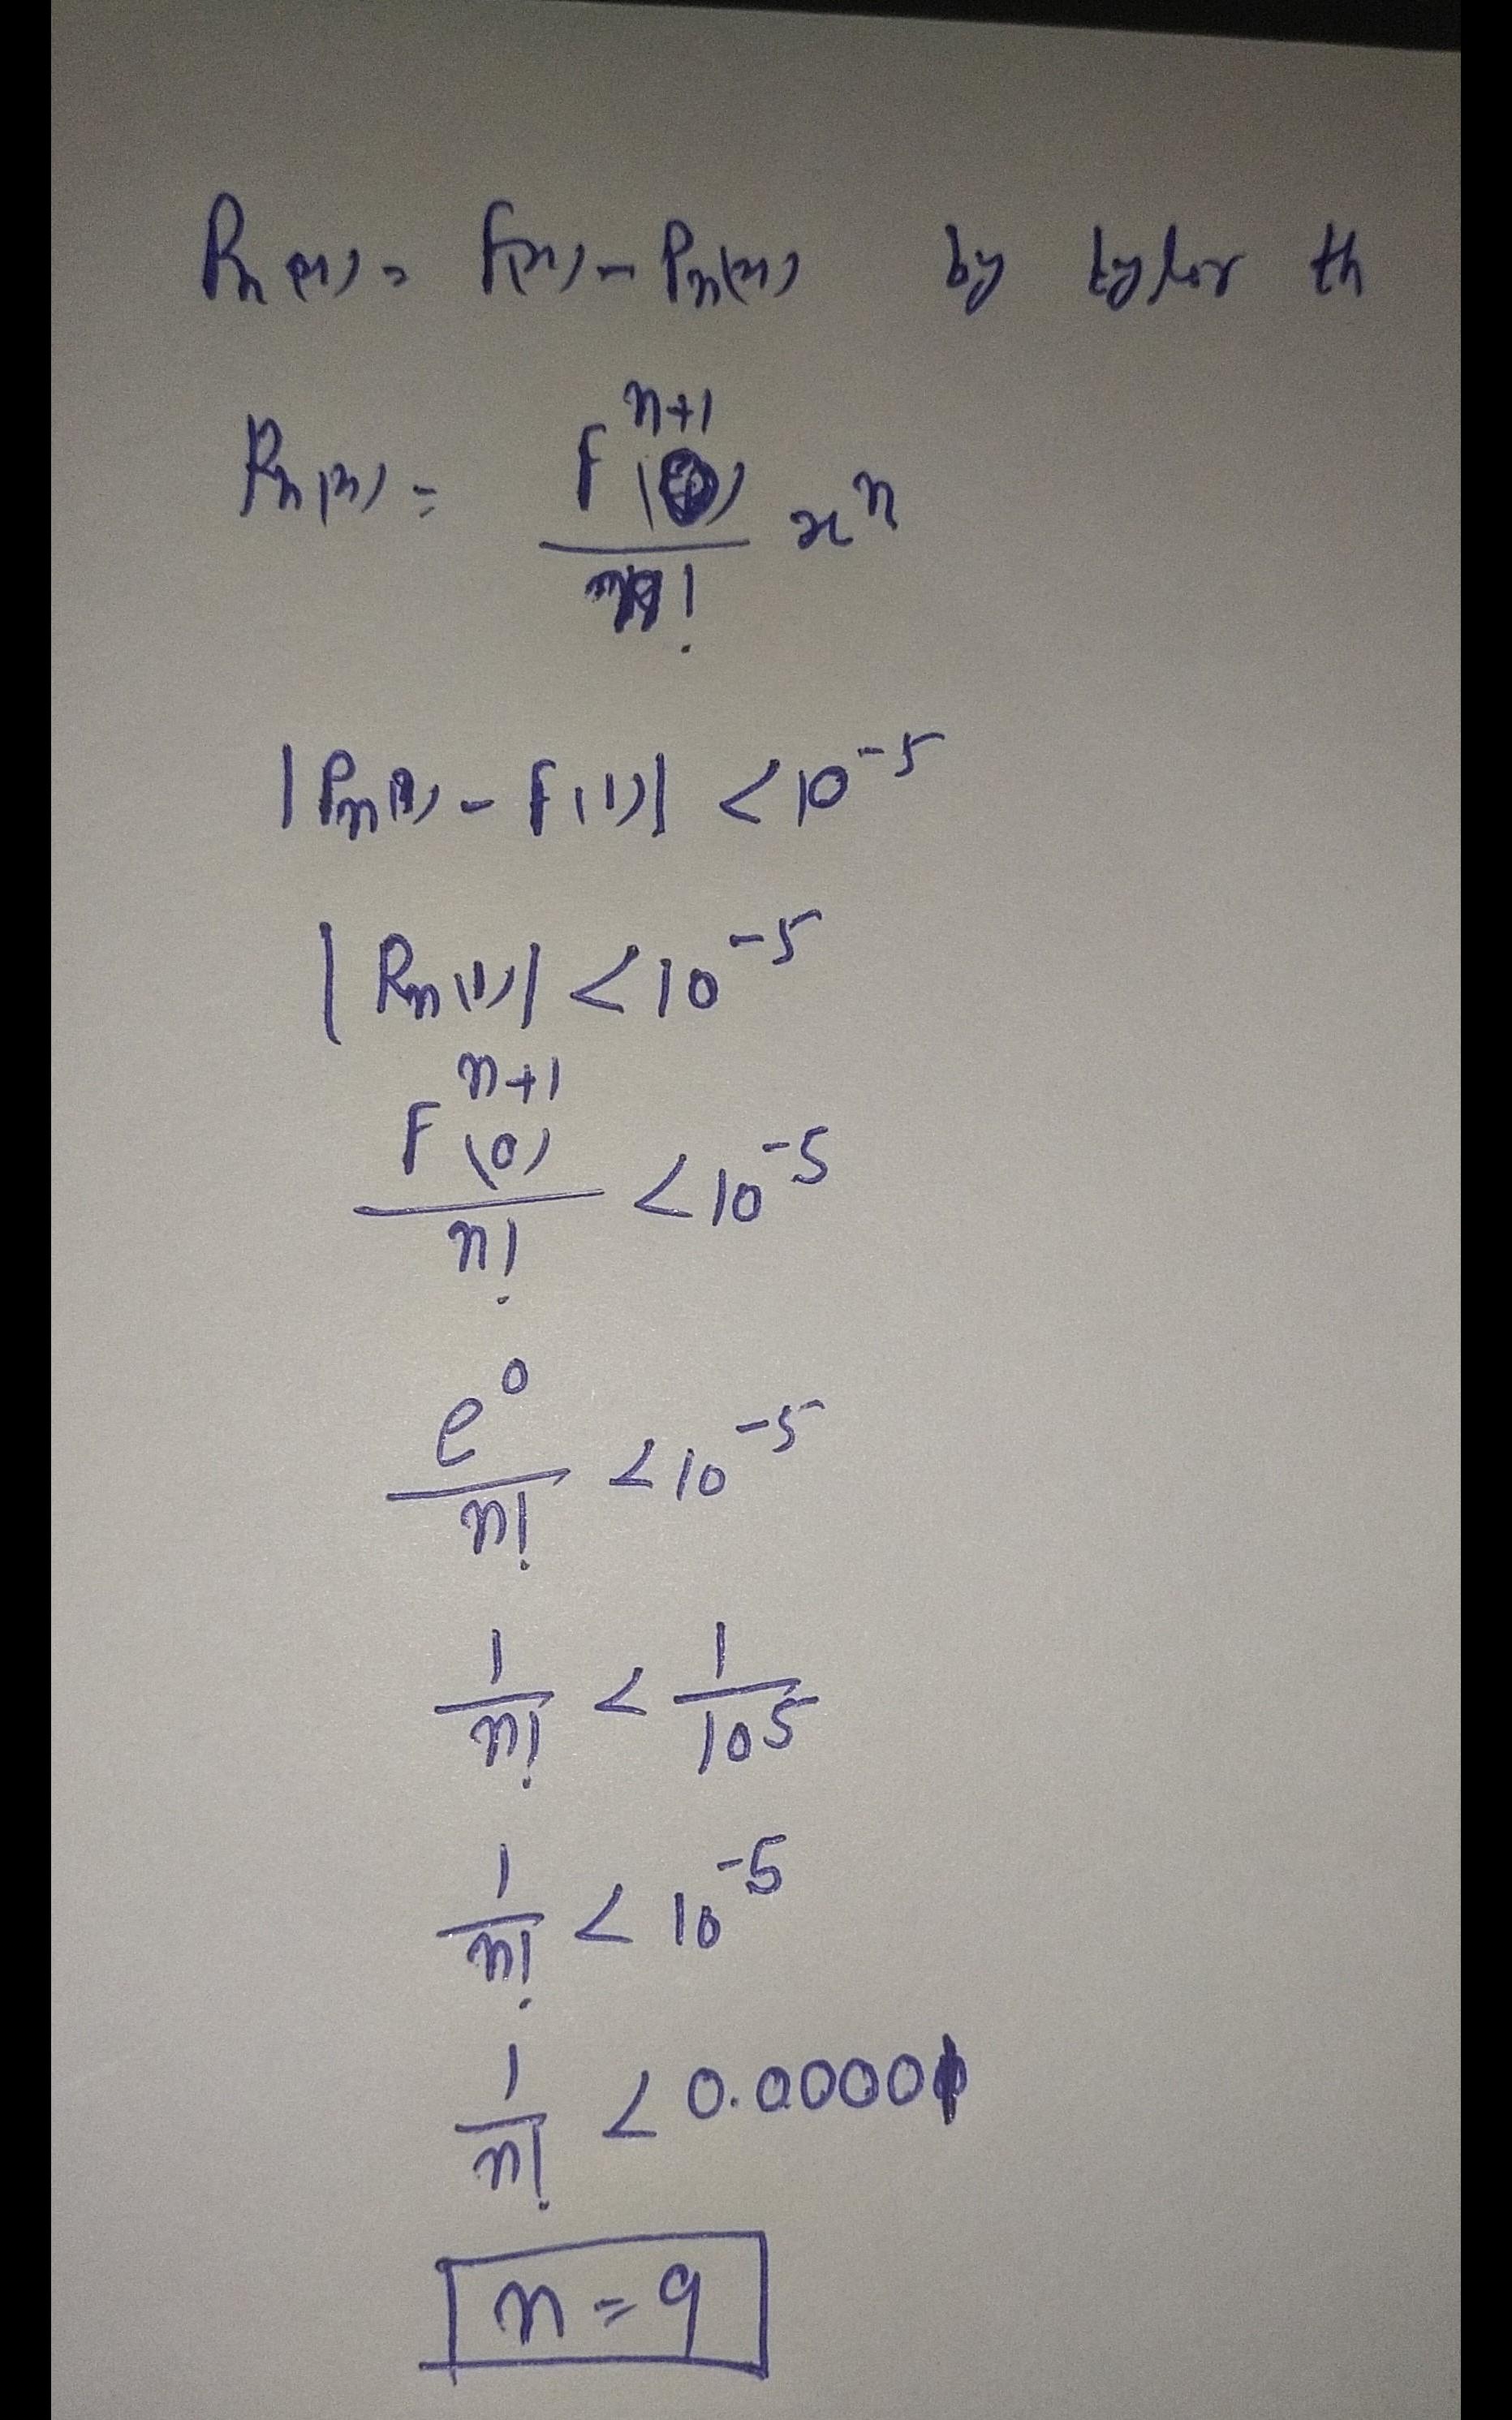 Rn(x) = f(x) - Pn(x) by tylor th
Rn(x) = f^{n+1}(0)/n! x^n
|Pn(1) - f(1)| < 10^{-5}
|Rn(1)| < 10^{-5}
f^{n+1}(0)/n! < 10^{-5}
e^0/n! < 10^{-5}
1/n! < 1/10^5
1/n! < 10^{-5}
1/n! < 0.00001
n = 9